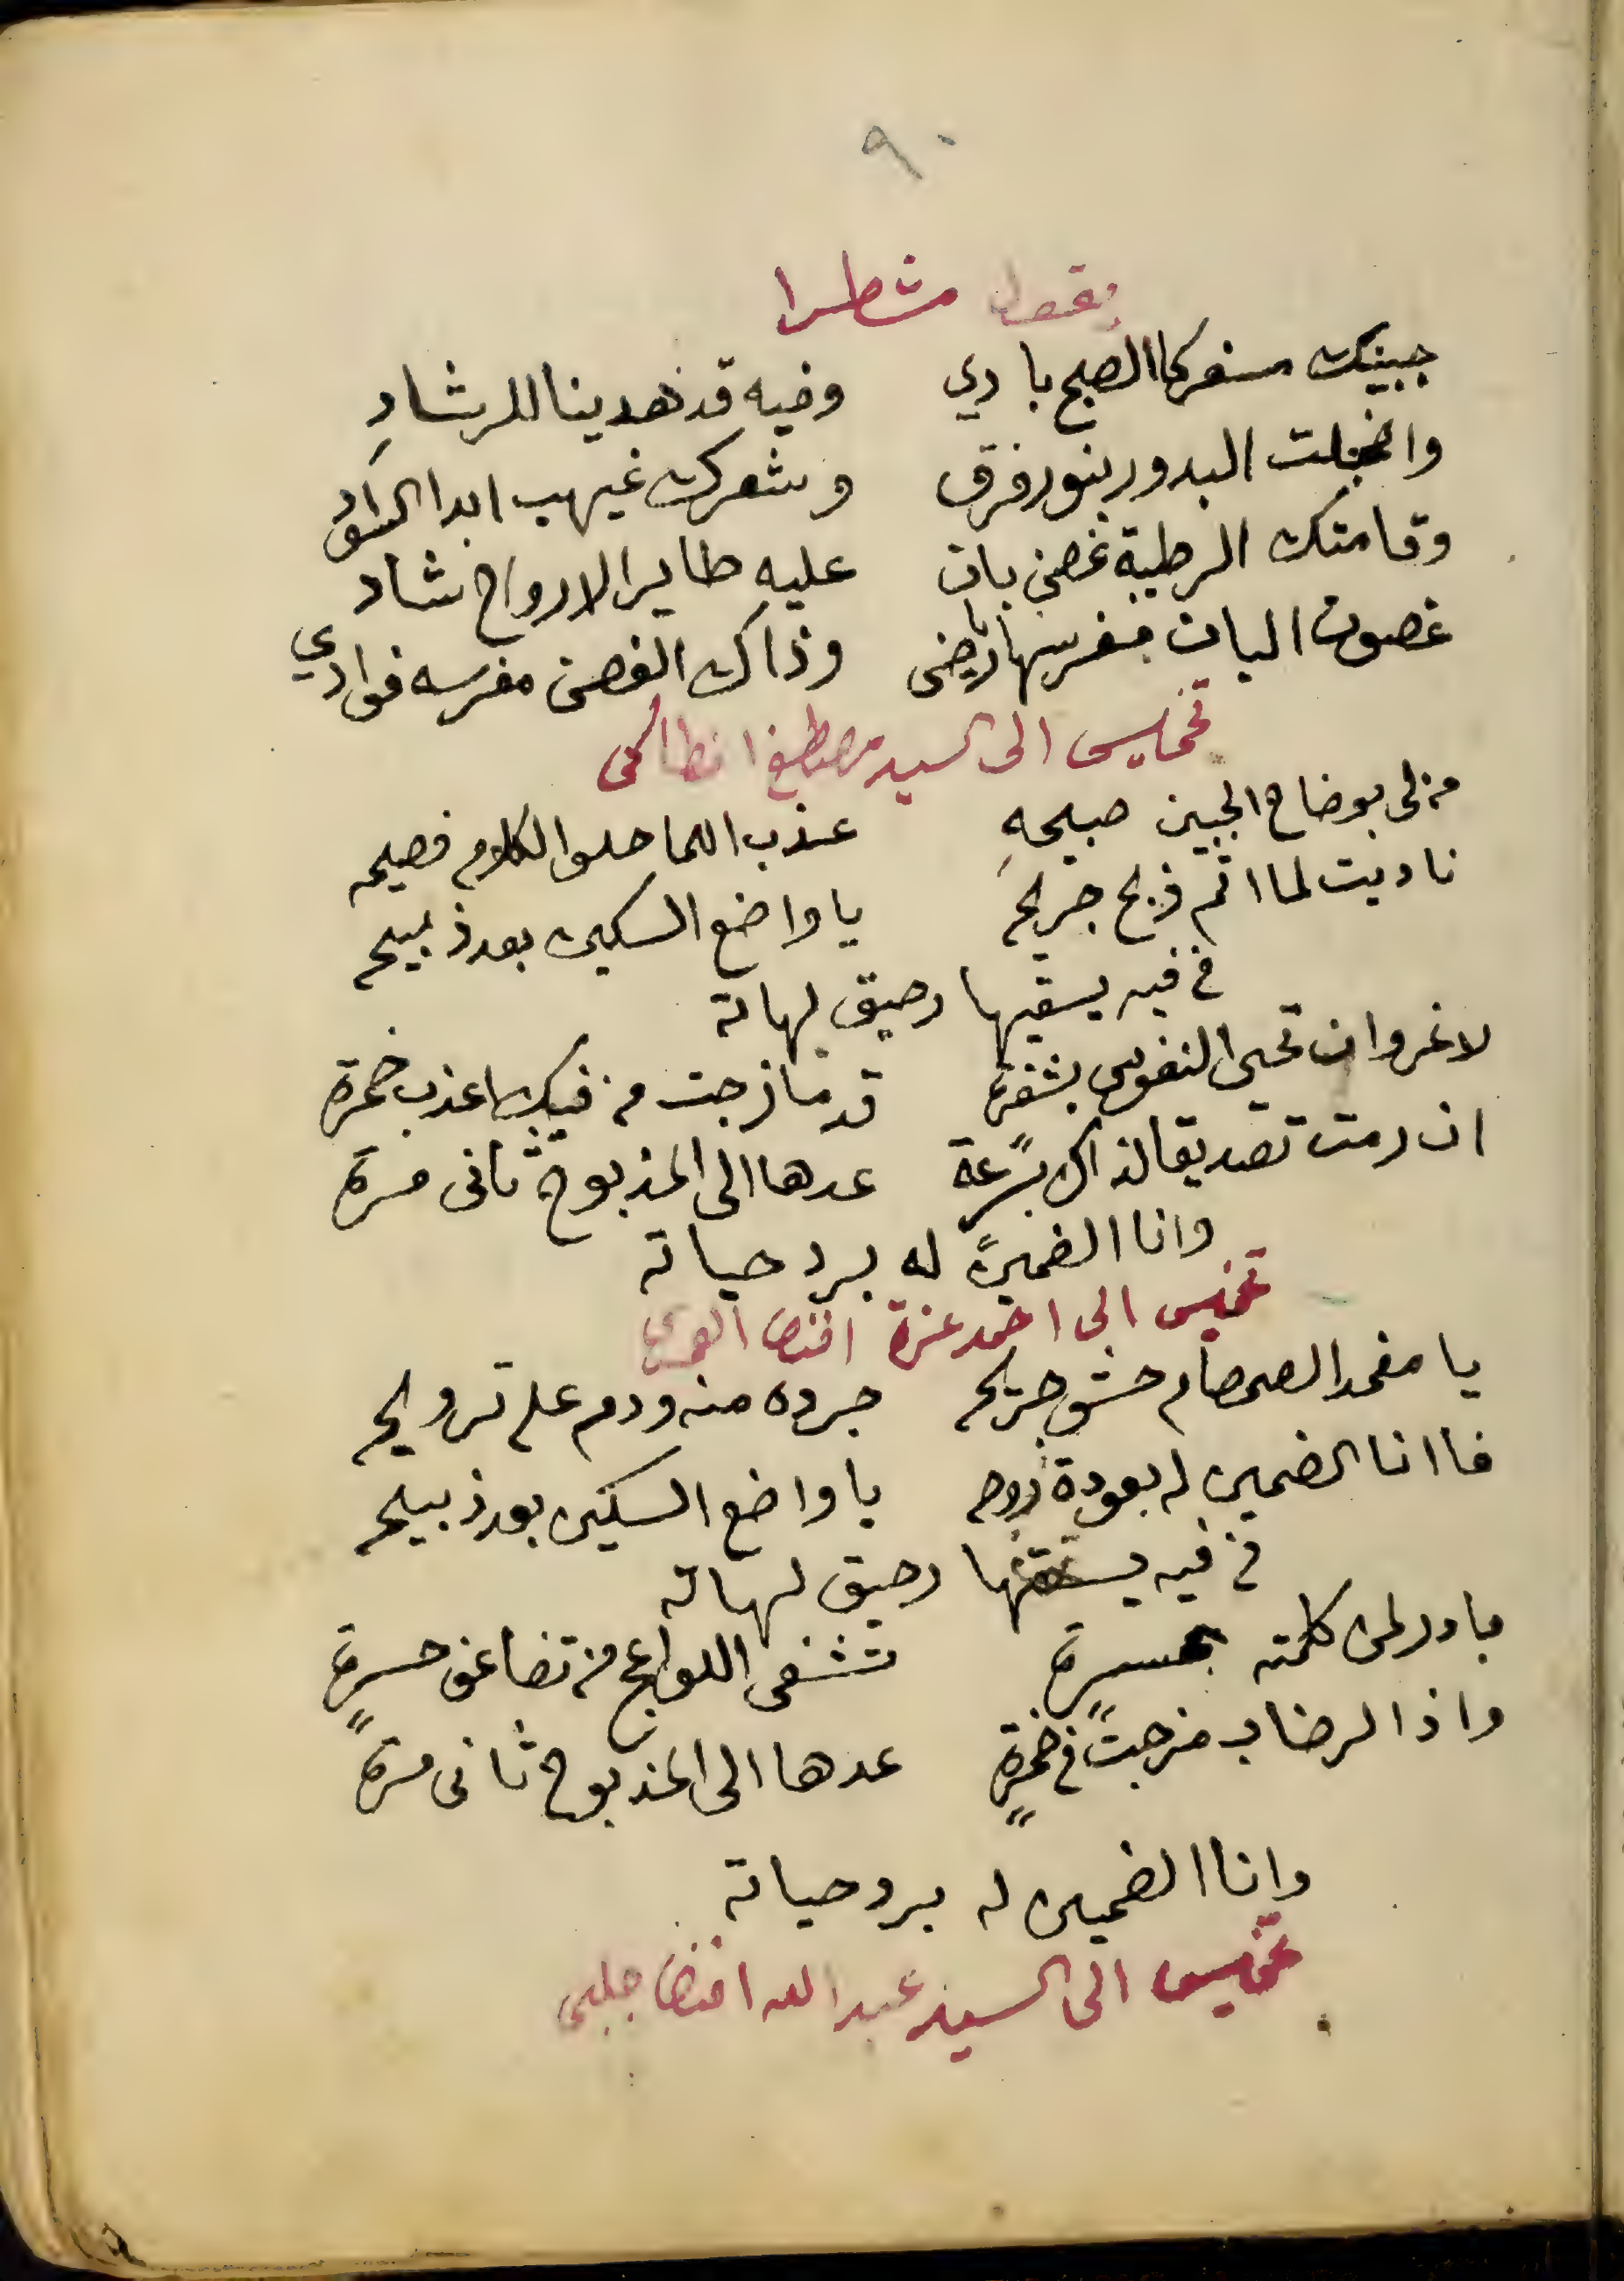 ٩٠
يقول مشطرا
جبينك مسفر كما الصبح بادي وفيه قد هدينا للرشاد
واخجلت البدور بنور فرق وشعرك غيهب ابدا السواد
وقامتك الرطيبة غصن بان عليه طاير الارواح شاد
غصون البان مغرسها رياض وذاك الغصن مغرسه فوادي
تخميس الى السيد مصطفا انطاكي
من لى بوضاح الجبين صبيحه عذب اللما حلو الكلام فصيحه
ناديت لما اثم ذبح جريحه يا واضع السكين بعد ذبيحه
في فيه يسقيها رحيق لهاته
لا غرو ان تحيى النفوس بشفرة قد مازجت من فيك اعذب خمرة
ان رمت تصديقا لذاك بسرعة عدها الى المذبوح ثانى مرة
وانا الضمين له برد حياته
تخميس الى احمد عزة افندى العمرى
يا مغمد الصمصام حشو جريحه جرده منه ودم على ترويحه
فاانا الضمين له بعودة روحه يا واضع السكين بعد ذبيحه
في فيه يسقيها رحيق لهاته
بادر لمن كلمته تشفى اللواعج من تضاعف حسرة
واذا الرضاب مزجت في خمرة عدها الى المذبوح ثانى مرة
وانا الضمين له برد حياته
تخميس الى السيد عبد الله افندى جلبى